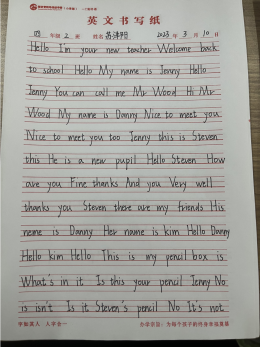 英文书写纸
四 年级 2 班 姓名 2023 年 3 月 10 日
Hello I'm your new teacher Welcome back
to school Hello My name is Jenny Hello
Jenny You can call me Mr Wood Hi Mr
Wood My name is Danny Nice to meet you
Nice to meet you too Jenny this is Steven
this He is a new pupil Hello Steven How
are you Fine thanks And you Very well
thanks you Steven these are my friends His
neme is Danny Her name is kim Hello Danny
Hello kim Hello This is my pencil box is
What's in it Is this your pencil Jenny No
is isn't Is it Steven's pencil No It's not
字如其人 人字合一